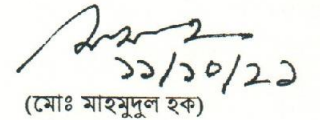 ১১/১০/২১
(মোঃ মাহমুদুল হক)